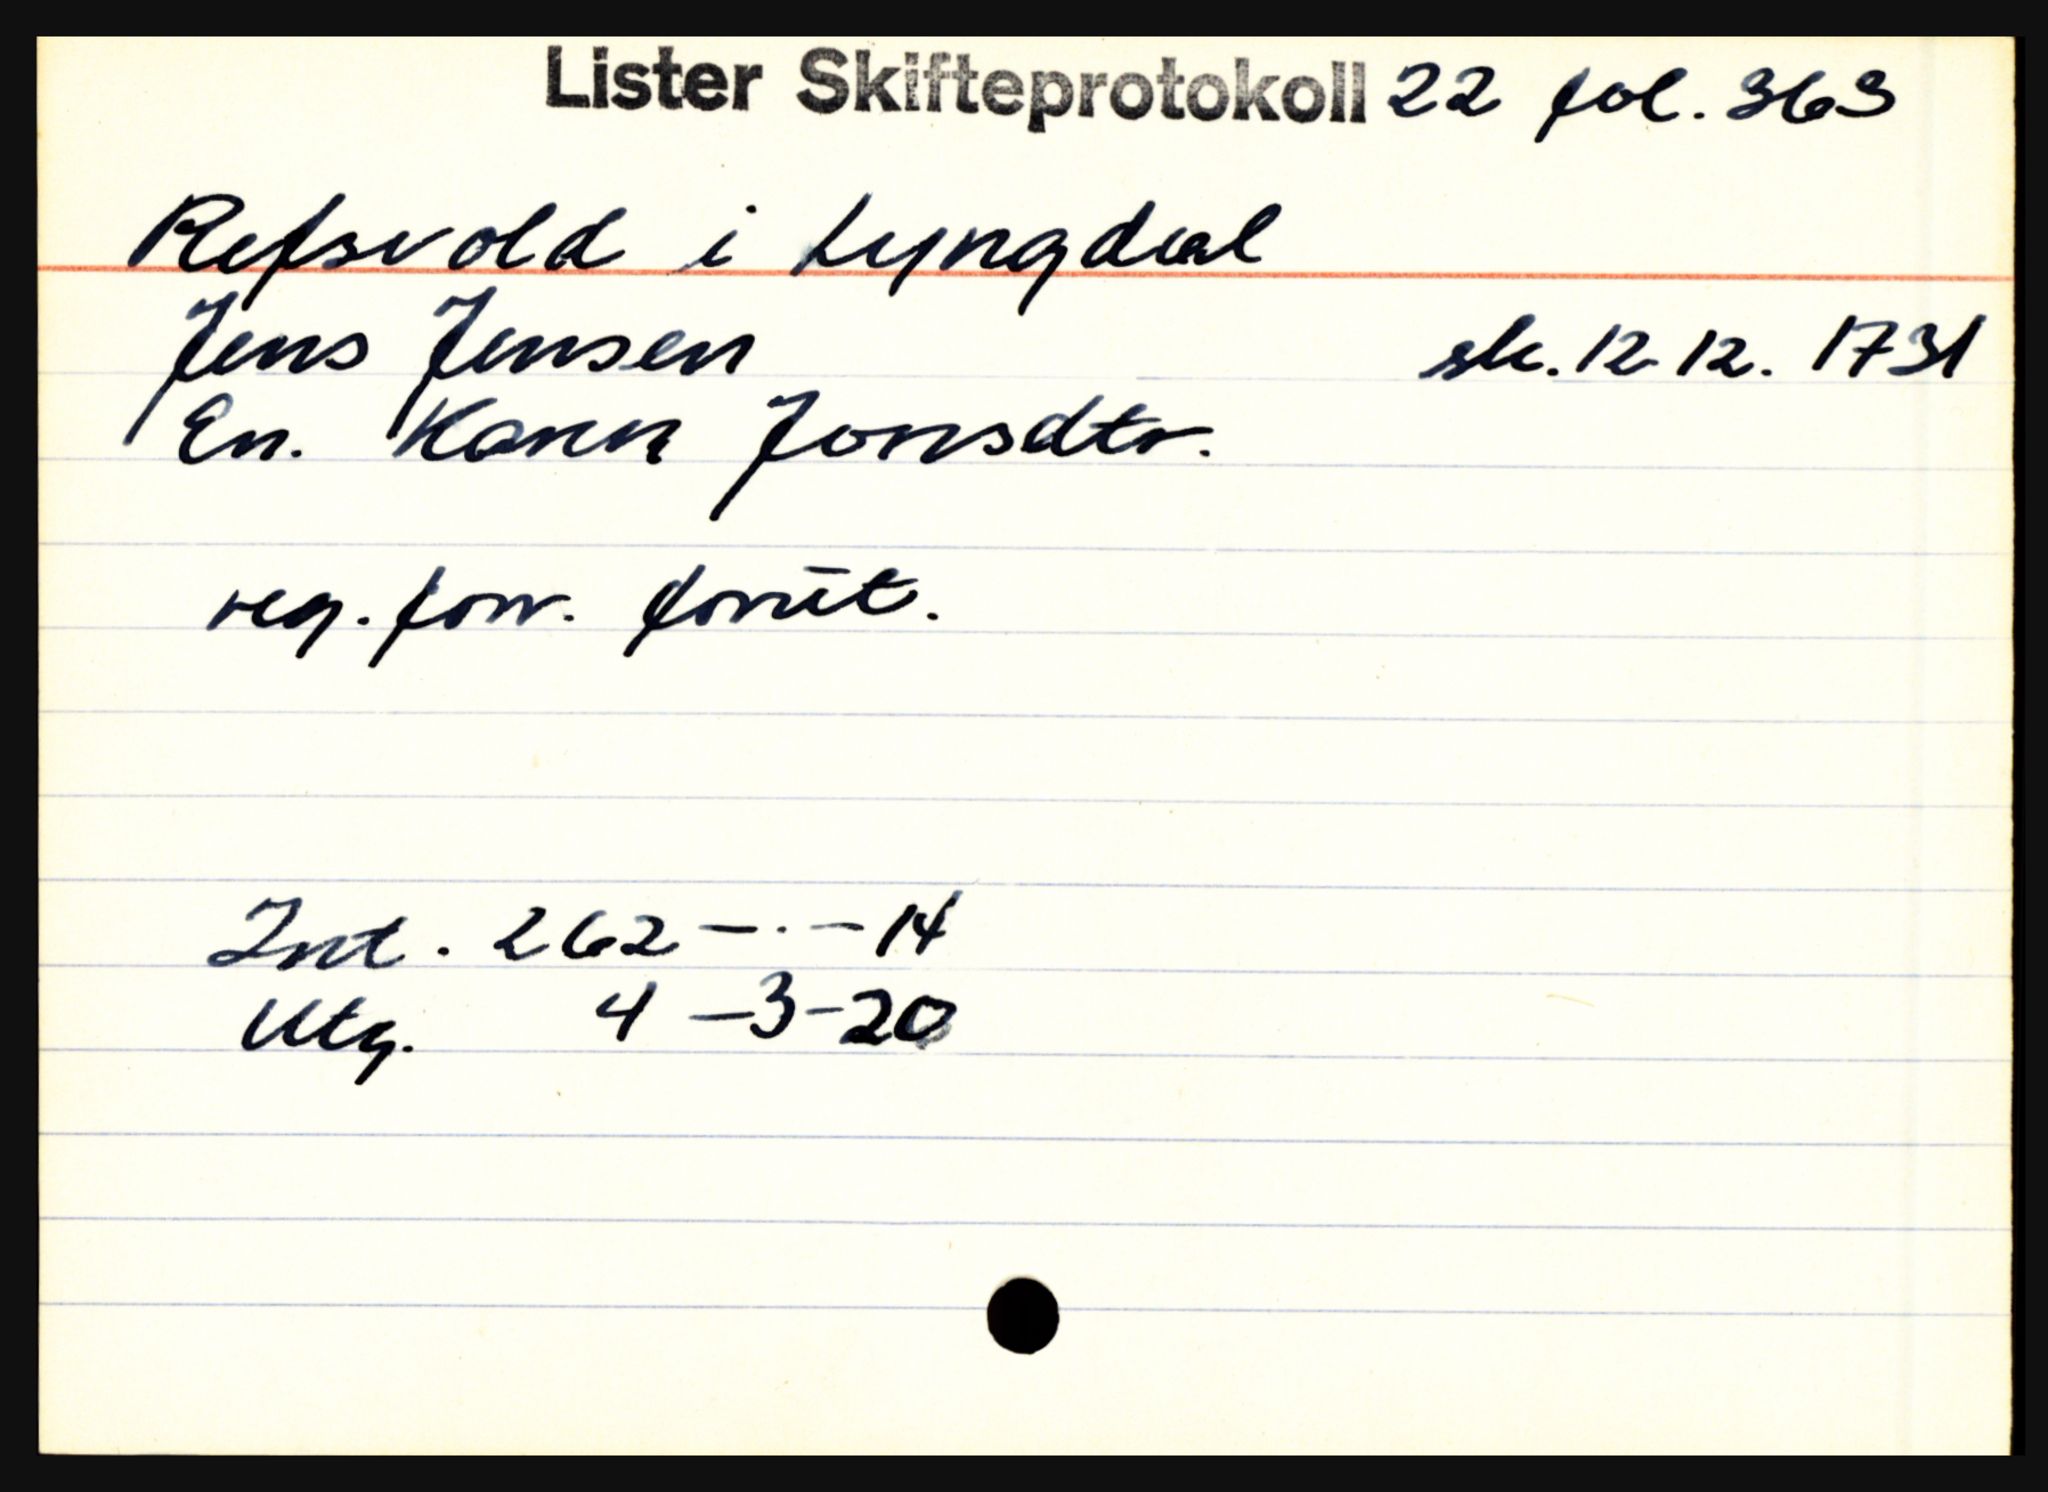 Lister Skifteprotokoll 22 fol. 363
Refsvold i Lyngdal
Jens Jensen sk. 12 12. 1731
En. Karen Jonsdtr.
reg. forr. forut.
Int. 262 – · – 14
Utg. 4 – 3 – 20